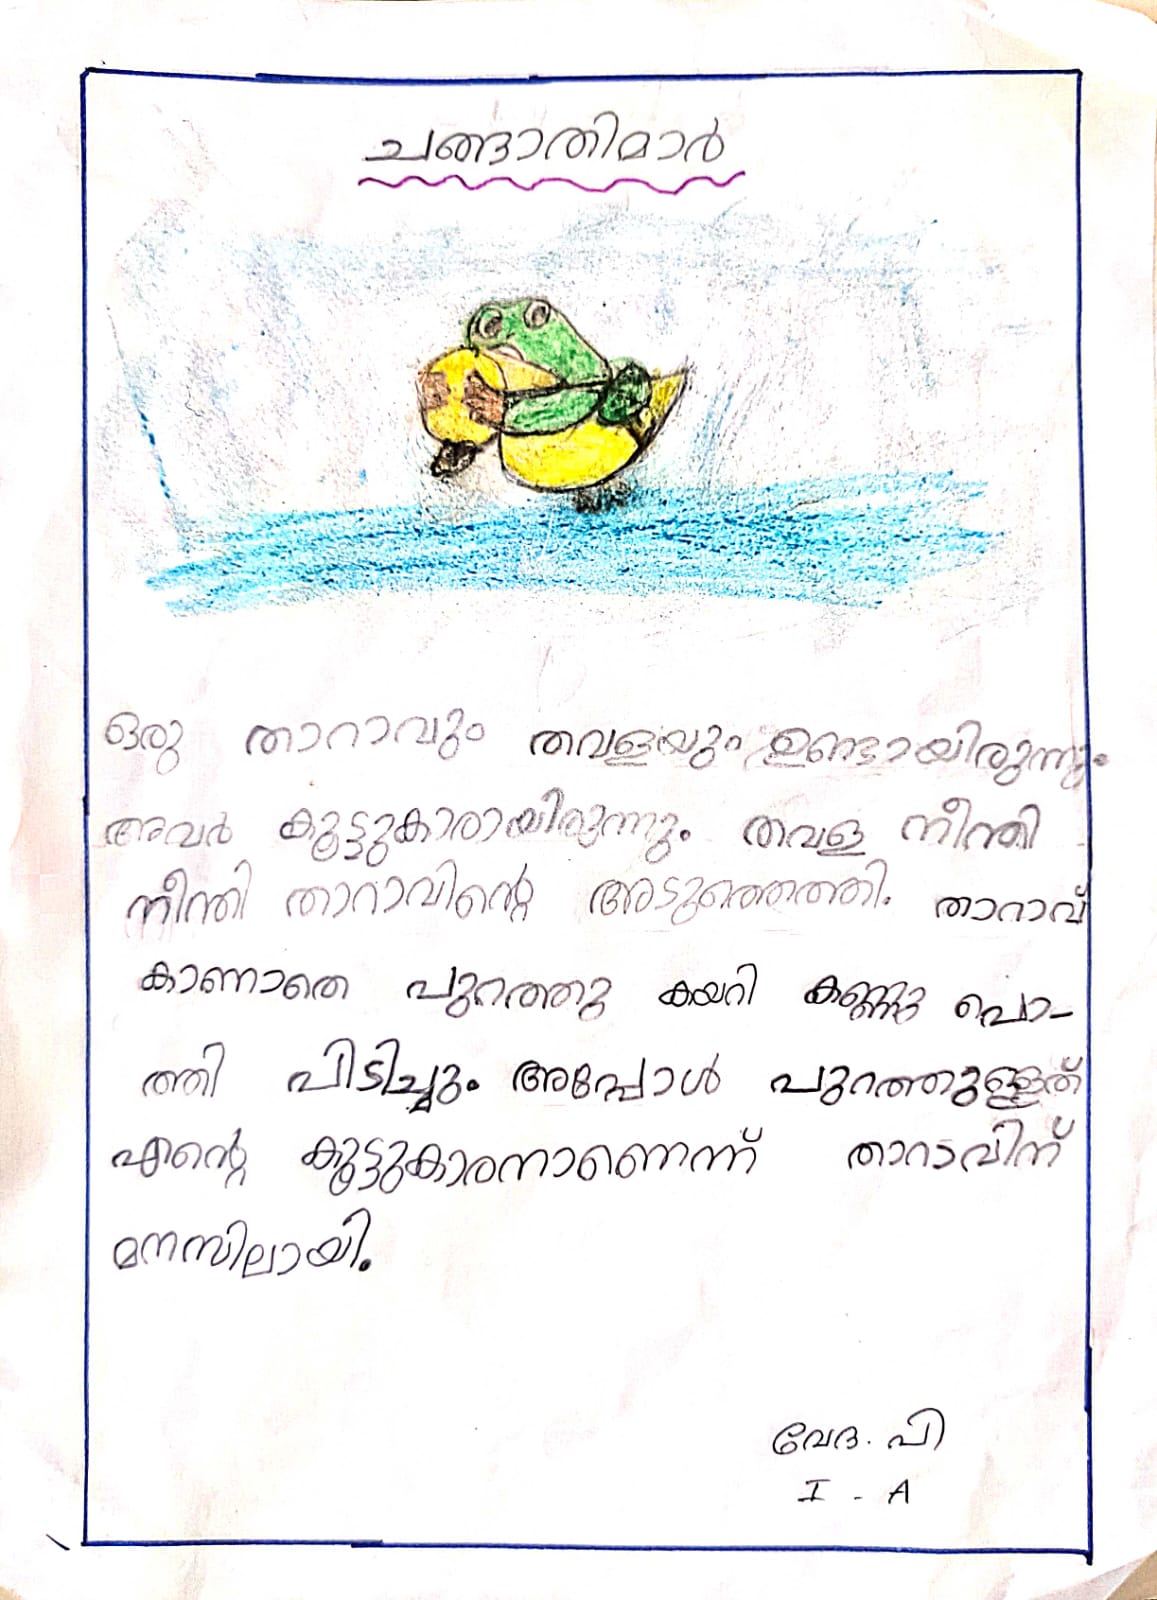 ചങ്ങാതിമാർ
ഒരു താറാവും തവളയും ഉണ്ടായിരുന്നു.
അവർ കൂട്ടുകാരായിരുന്നു. തവള നീന്തി
നീന്തി താറാവിന്റെ അടുത്തെത്തി. താറാവ്
കാണാതെ പുറത്തു കയറി കണ്ണു പൊ-
ത്തി പിടിച്ചും അപ്പോൾ പുറത്തുള്ളത്
എന്റെ കൂട്ടുകാരനാണെന്ന് താറാവിന്
മനസിലായി.
വേദ. പി
I - A